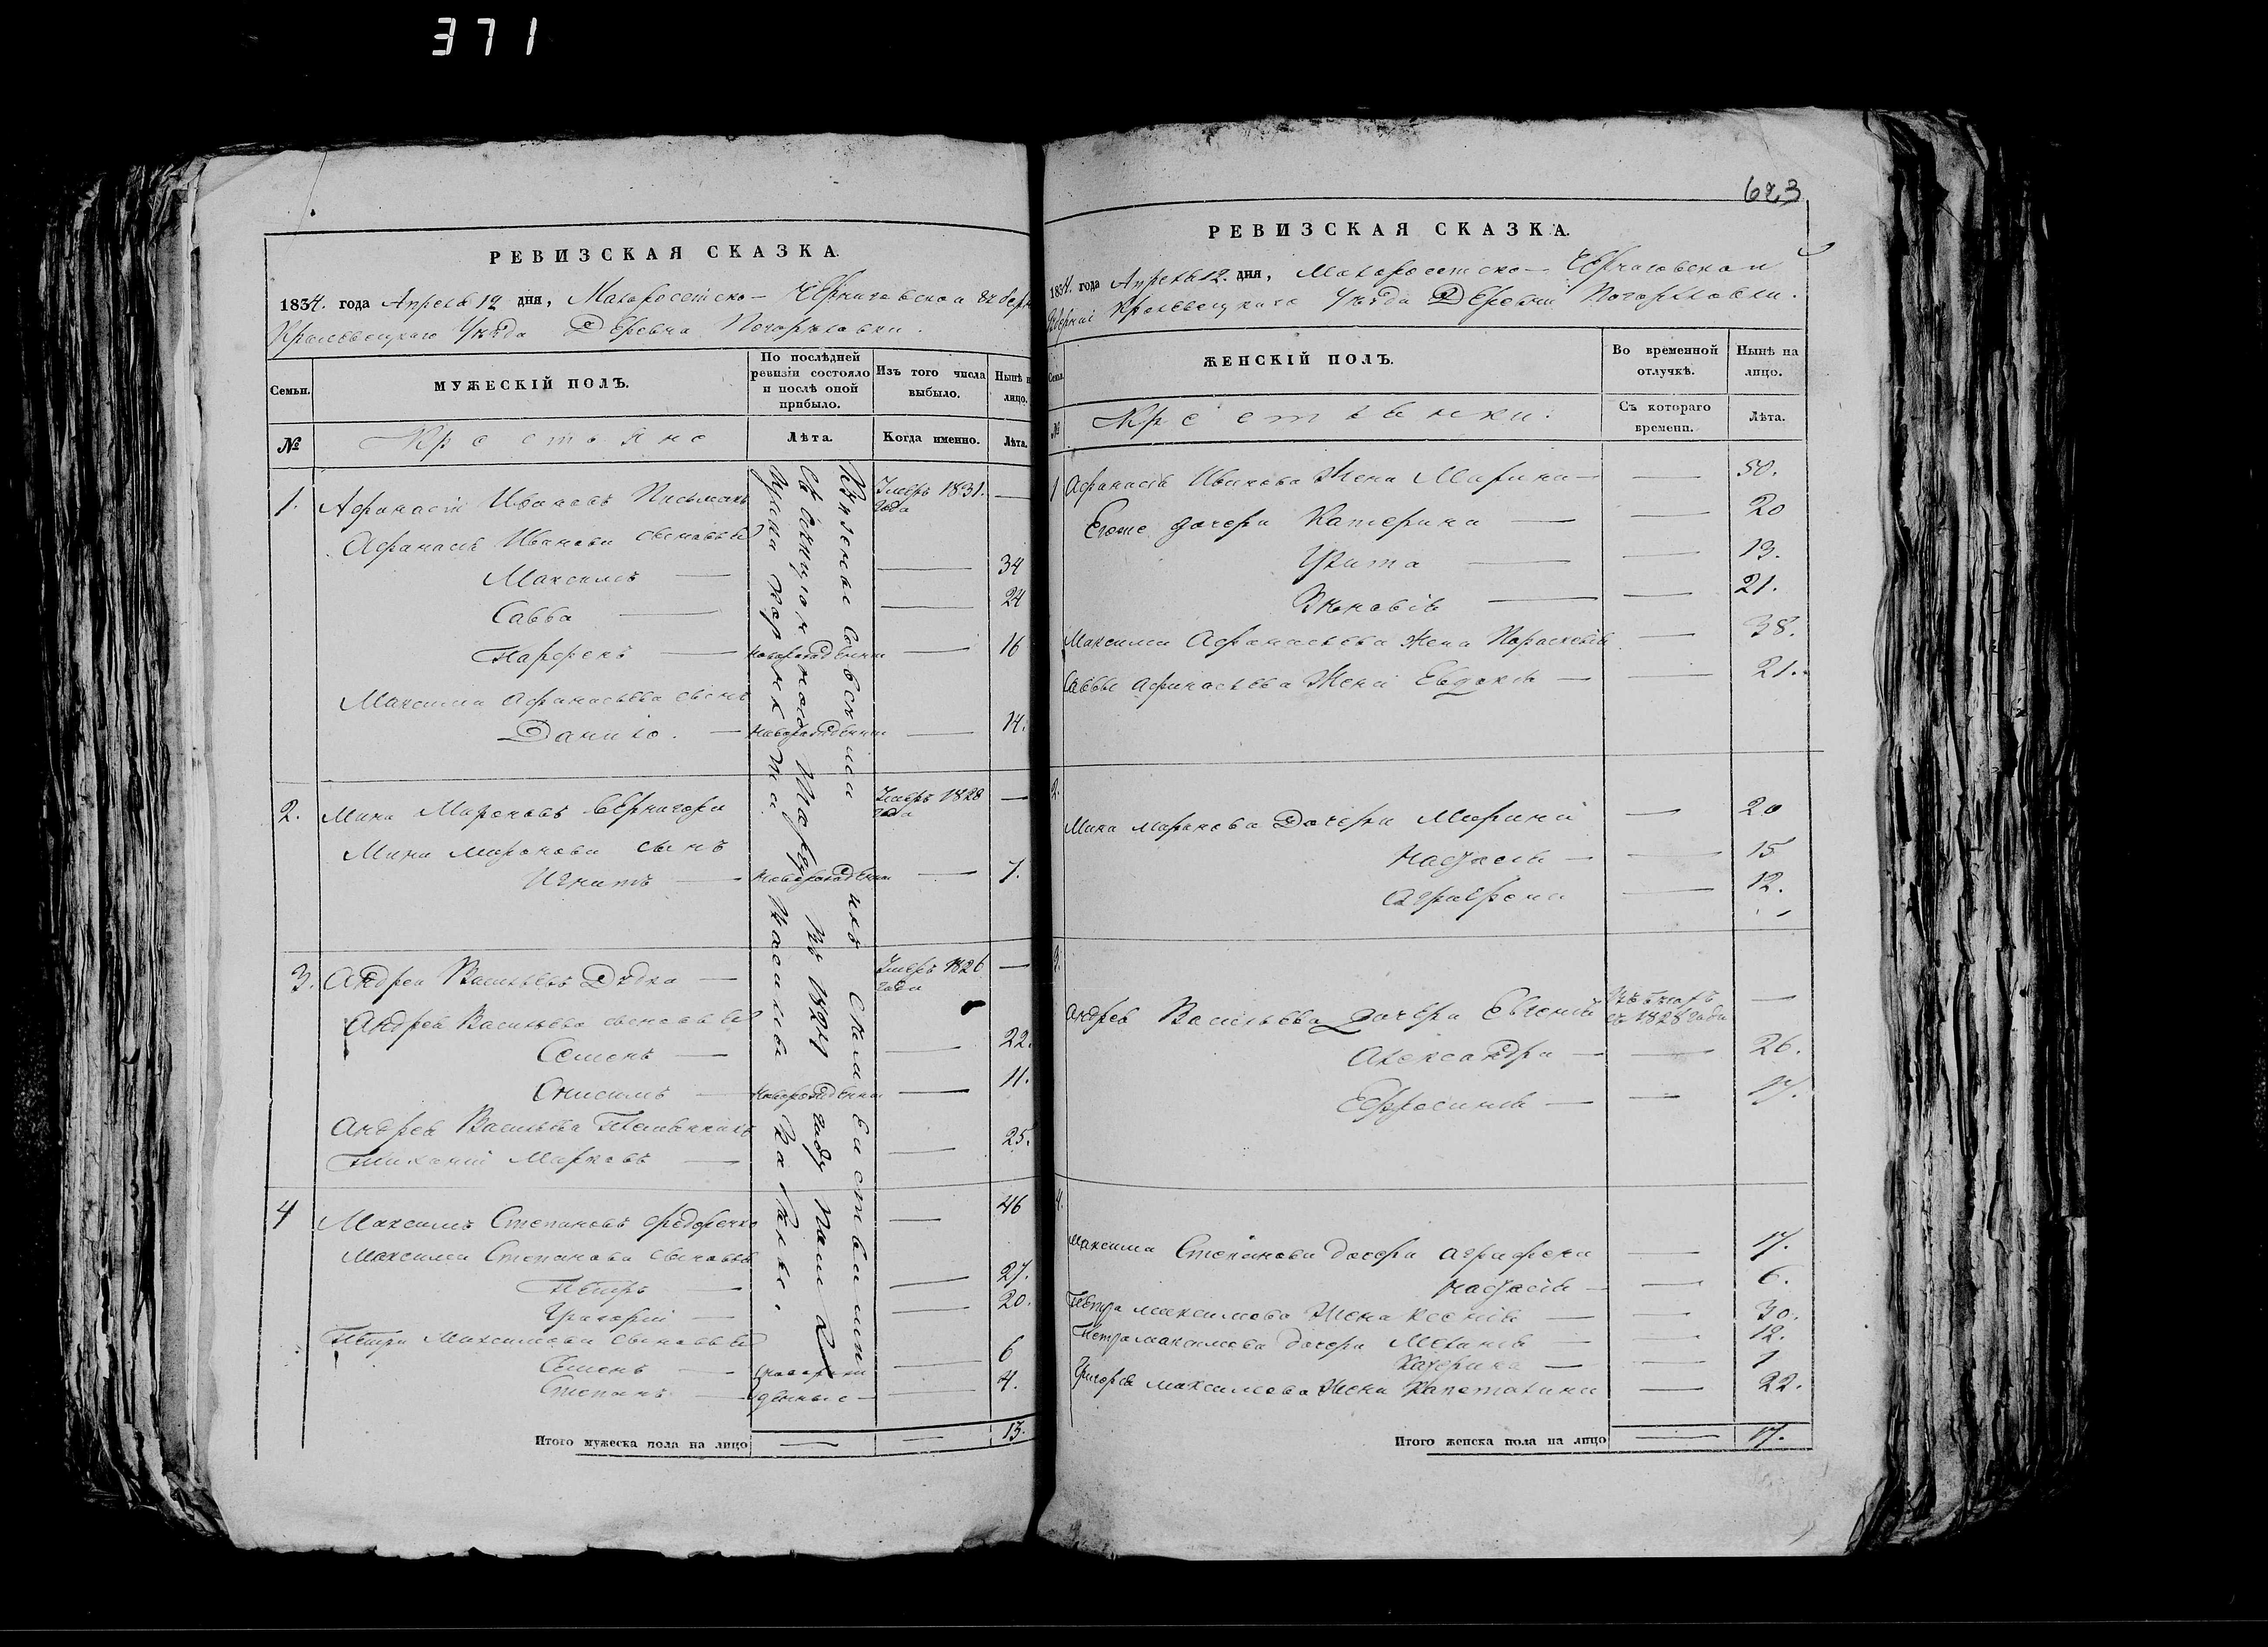 371
623
РЕВИЗСКАЯ СКАЗКА.
1834. года Апреля 12 дня, Малоросетско- Черниговской губер
Кролевецкаго Уѣзда Деревна Погорѣловки.
Семьи. МУЖЕСКІЙ ПОЛЪ. По послѣдней ревизіи состояло и послѣ оной прибыло. Изъ того числа выбыло. Нынѣ н лицо.
№ Крестьяне Лѣта. Когда именно. Лѣта.
1. Афанасій Ивановъ Умеръ 1831. года —
Афанасія Иванова сыновья
Максимъ — — 34
Савва — — 24
Парфенъ — новорожденный — 16
Максима Афанасьева сынъ
Данило. — новорожденный — 14.
2. Мина Мироновъ Вернигора Умеръ 1828 года —
Мины Миронова сынъ
Игнатъ — новорожденный — 7.
3. Андрей Васильевъ Дѣдка — Умеръ 1826 года —
Андрея Васильева сыновья
Семенъ — — 22.
Онисимъ — новорожденный — 11.
Андрея Васильева племянникъ
Тихоній Марковъ — — 25.
4 Максимъ Степановъ Федорченко — 46
Максима Степанова сыновья
Петръ — — 27.
Григорій — — 20.
Петра Максимова сыновья
Семенъ — новорож — 6
Степанъ — денные — 4.
Итого мужеска пола на лицо — — 13.
въ 1824 году
РЕВИЗСКАЯ СКАЗКА.
1834. года Апреля 12. дня, Малоросетско- Черниговской
Губерніи Кролевецкаго Уѣзда Деревни Погорѣловки.
Семьи ЖЕНСКІЙ ПОЛЪ. Во временной отлучкѣ. Нынѣ на лицо.
№ Крестьянки. Съ котораго времени. Лѣта.
1 Афанасія Иванова жена Марина — — 50.
Егоже дочери Катерина — — 20
Улита — — 13.
Зѣновія — — 21.
Максима Афанасьева жена Параскевія — 38.
Саввы Афанасьева жена Евдокія — — 21.
2.
Мина Миронова дочери Марина — 20
Настасія — — 15
Агрифена — 12.
3.
Андрея Васильева дочери Евгенія въ бѣгахъ съ 1828 года —
Александра — — 26.
Ефросинія — — 17.
4.
Максима Степанова дочери Агрифена — 17.
Настасія — — 6.
Петра Максимова жена Ксенія — — 30.
Петра Максимова дочери Меланія — — 12.
Катерина — — 1
Григорія Максимова жена Капеталина — 22.
Итого женска пола на лицо — 17.